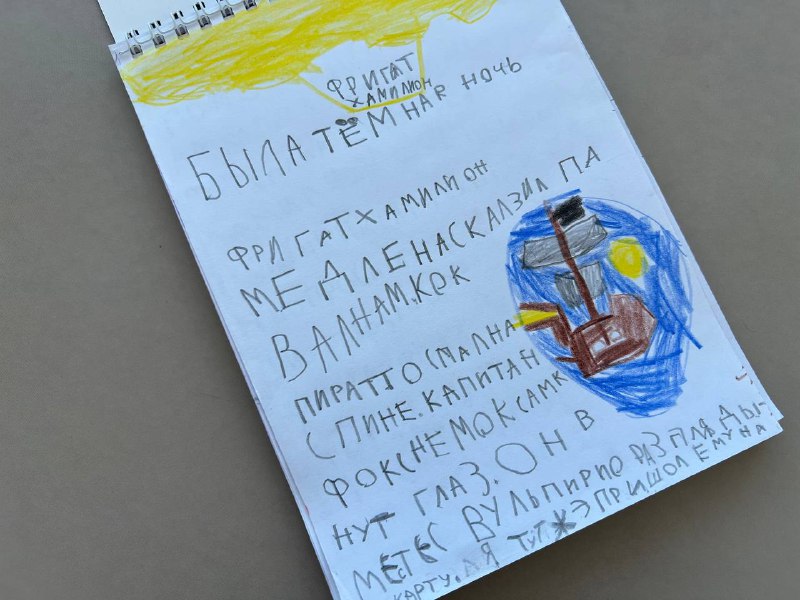 ФРИГАТ
ХАМИЛИОН
БЫЛА ТЁМНАЯ НОЧЬ
ФРИГАТ ХАМИЛИОН
МЕДЛЕНА СКАЛЗИЛ ПА
ВАЛНАМ. КОК
ПИРАТ ПОСПАЛ НА
СПИНЕ. КАПИТАН
ФОКС НЕ МОК САМК
НУТ ГЛАЗ. ОН В
МЕСТЕ С ВУЛЬПИРИО РАЗГЛЯДЫ-
КАРТУ. ТУТЖЭ ПРИШОЛ ЕМУ НА